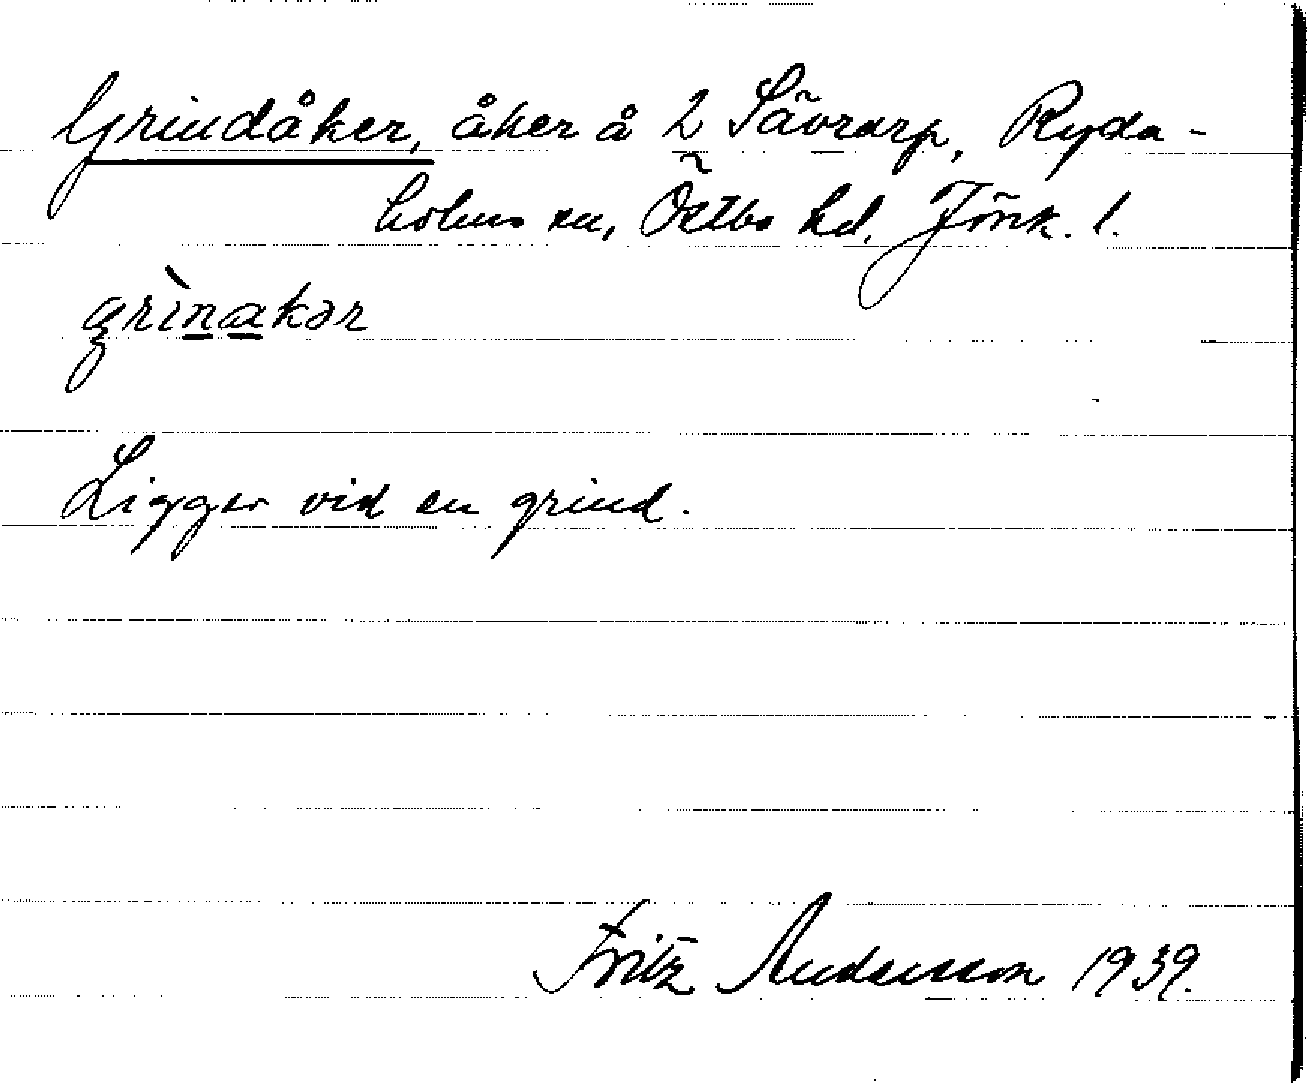 Grindåker, åker å 2 Sävrarp, Ryda-
holms sn, Östbo hd, Jönk. l.
grìnakər
Ligger vid en grind.
Fritz Andersson 1939.